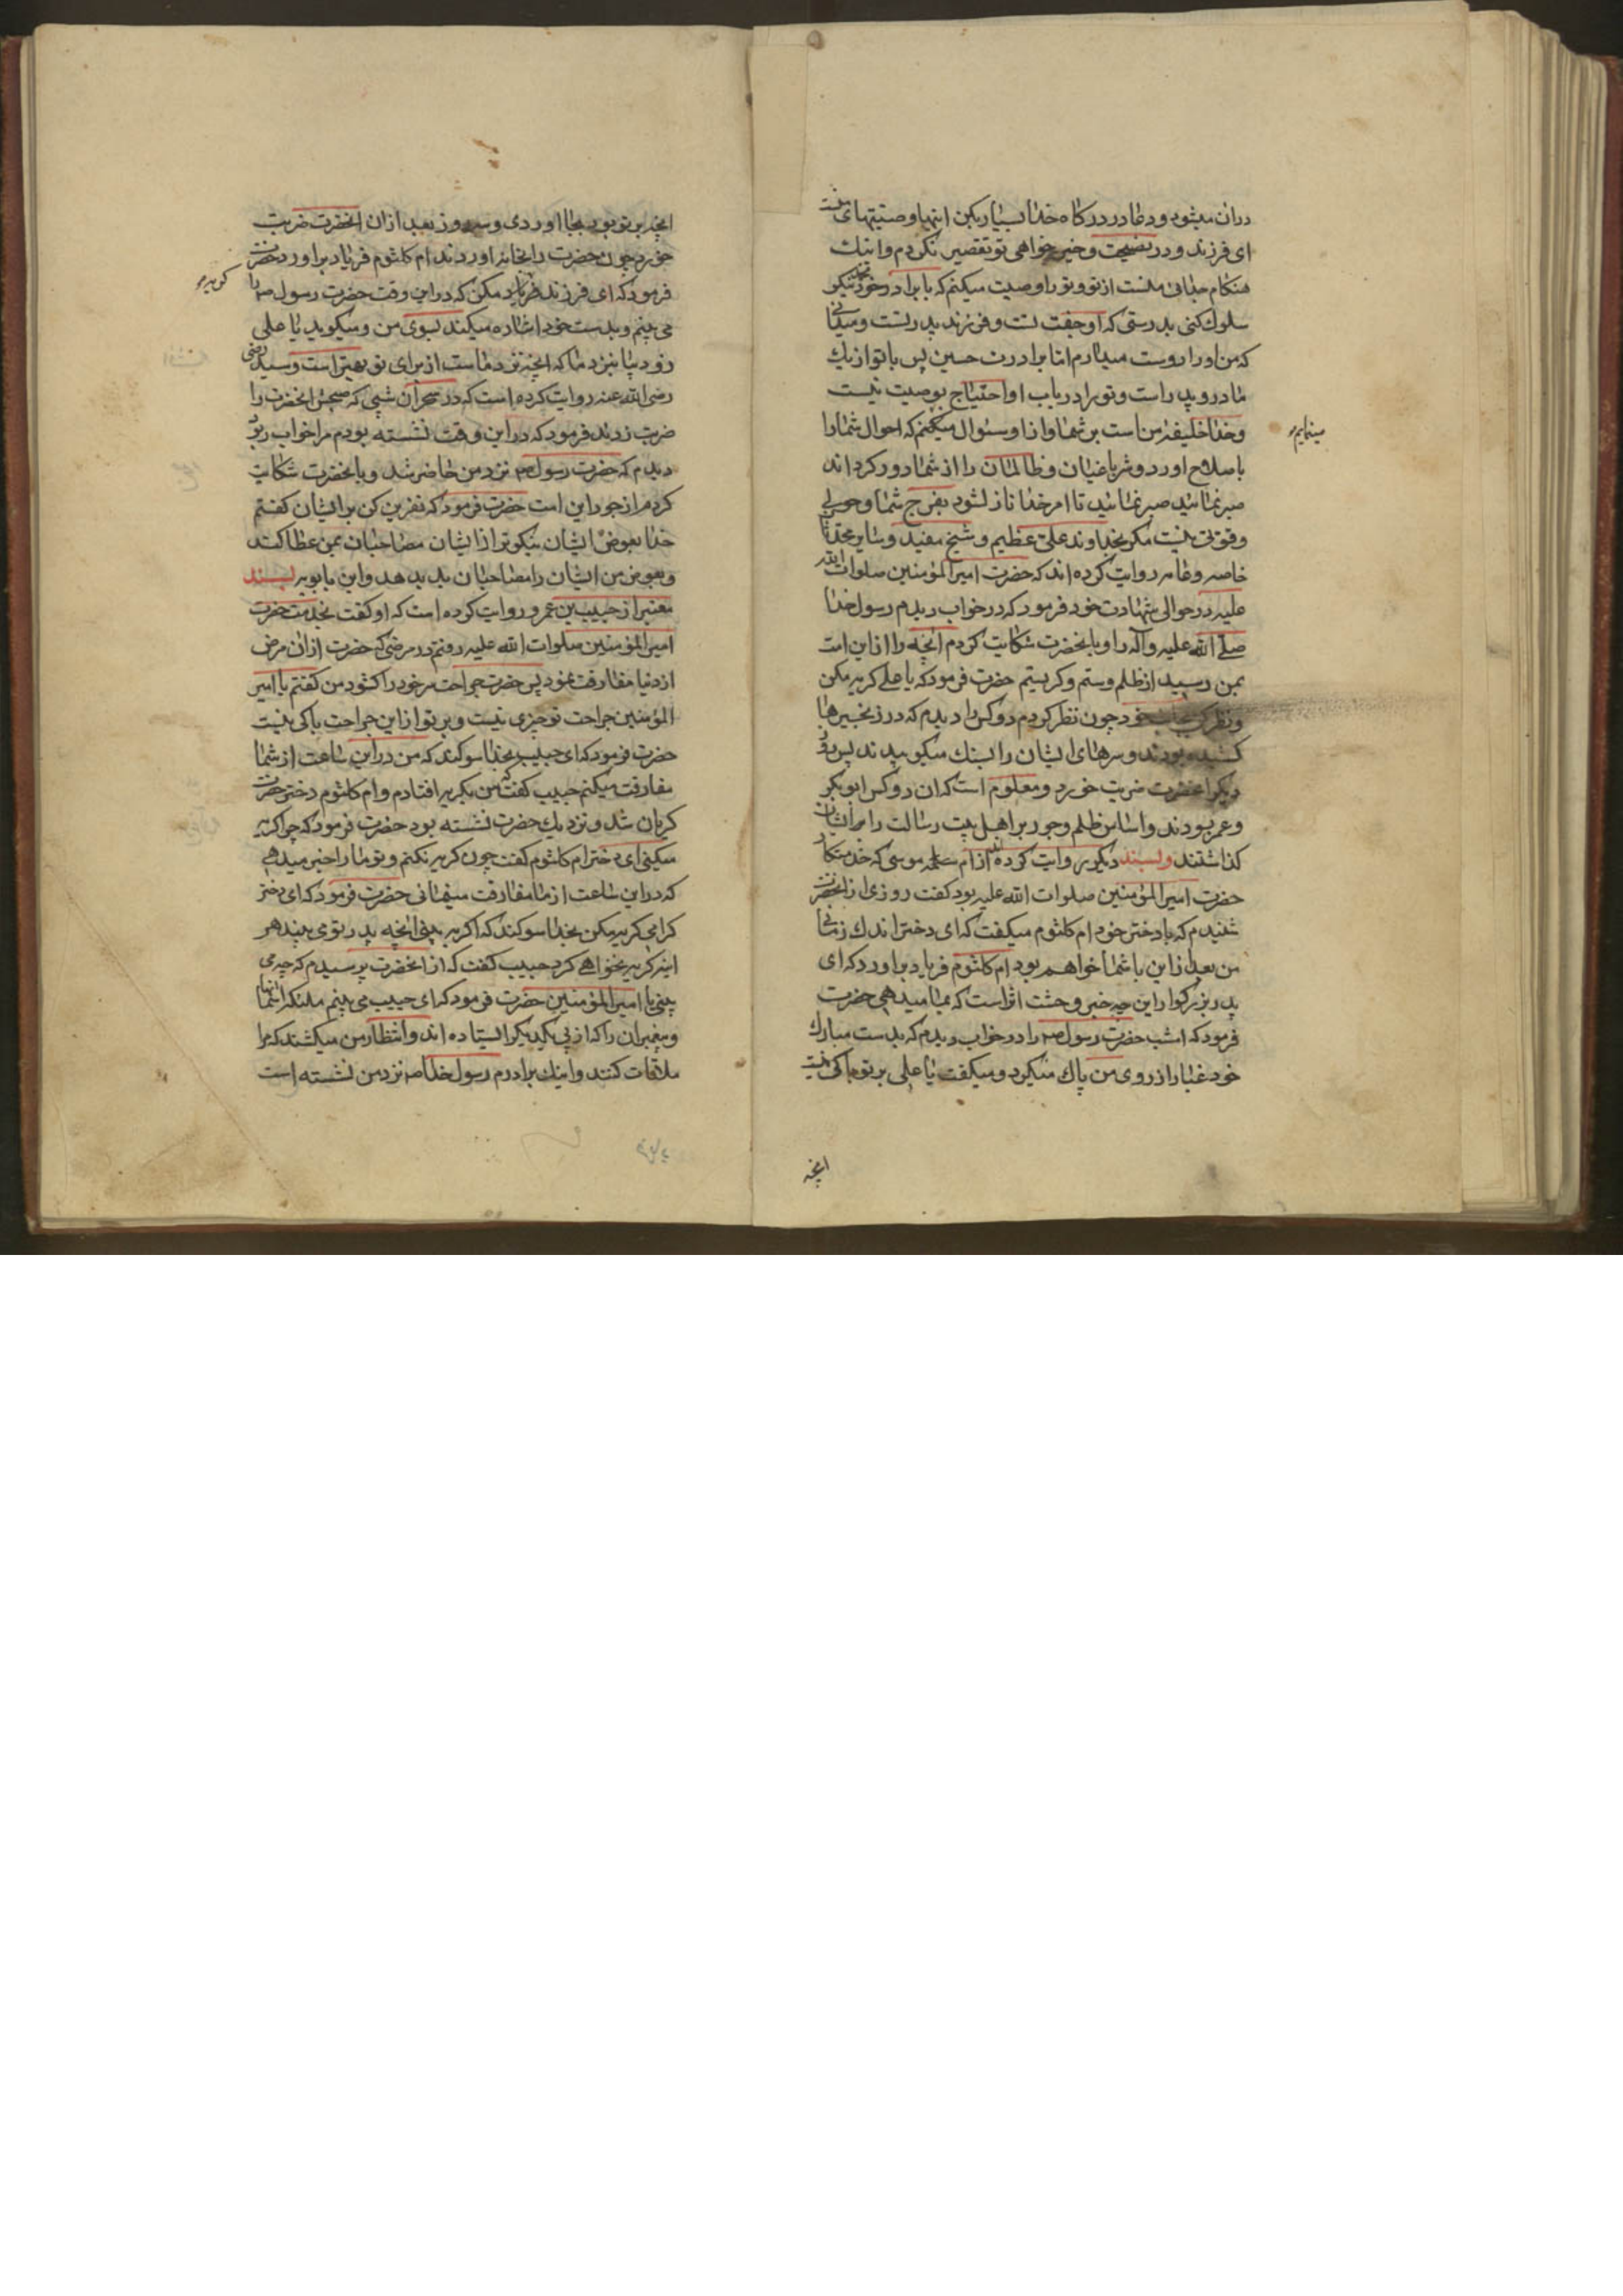 دران میشود و دعا در درکاه خدا بسیار بکن اینها وصیتهای منست
ای فرزند و در نصیحت و خیر خواهی تو تقصیر نکردم و اینک
هنکام جدائی منست از تو و تو را وصیت میکنم که با برادر خود محمد نیکو
سلوک کنی بدرستی که او جفت تست و فرزند پدر تست و میدانی
که من او را دوست میدارم اما برادرت حسین پس با تو از یک
مادر و پدر است و تو را در باب او احتیاج بوصیت نیست
و خدا خلیفه من است بر شما و از او سئوال میکنم که احوال شما را
مینمایم
باصلاح اورد و شر باغیان و ظالمان را از شما دور کرداند
صبر نمائید صبر نمائید تا امر خدا نازل شود بفرج شما و حولی
و قوتی نیست مکر بخداوند علی عظیم و شیخ مفید و سایر محدثان
خاصه و عامه روایت کرده اند که حضرت امیرالمؤمنین صلوات الله
علیه در حوالی شهادت خود فرمود که در خواب دیدم رسول خدا
صلی الله علیه و آله را و بانحضرت شکایت کردم انچه را از این امت
بمن رسید از ظلم و ستم و کریستم حضرت فرمود که یا علی کریه مکن
و نظر کن بجانب خود چون نظر کردم دو کس را دیدم که در زنجیرها
کشیده بودند و سرهای ایشان را بسنک میکوبیدند پس روز
دیکر انحضرت ضربت خورد و معلوم است که ان دو کس ابوبکر
و عمر بودند و اساس ظلم و جور بر اهل بیت رسالت را برایشان
کذاشتند و بسند دیکر روایت کرده اند از ام موسی که خدمتکار
حضرت امیرالمؤمنین صلوات الله علیه بود کفت روزی از انحضرت
شنیدم که با دختر خود ام کلثوم میکفت که ای دختر اندک زمانی
من بعد از این با شما خواهم بود ام کلثوم فریاد براورد که ای
پدر بزرکوار این چه خبر وحشت اثر است که بما میدهی حضرت
فرمود که امشب حضرت رسول ص را در خواب دیدم که بدست مبارک
خود غبار از روی من پاک میکرد و میکفت یا علی بر تو باکی نیست
انچه
انچه بر تو بود بجا اوردی و سه روز بعد از ان انحضرت ضربت
خورد چون حضرت را بخانه اوردند ام کلثوم فریاد براورد حضرت
فرمود که ای فرزند فریاد مکن که در این وقت حضرت رسول ص را
کریه
می بینم و بدست خود اشاره میکند بسوی من و میکوید یا علی
زود بیا بنزد ما که انچه نزد ماست از برای تو بهتر است و سید رضی
رضی الله عنه روایت کرده است که در سحر آن شبی که صبحش انحضرت را
ضربت زدند فرمود که در این وقت نشسته بودم مرا خواب ربود
دیدم که حضرت رسول ص نزد من حاضر شد و بانحضرت شکایت
کردم از جور این امت حضرت فرمود که نفرین کن بر ایشان کفتم
خدا بعوض ایشان نیکوتر از ایشان مصاحبان بمن عطا کند
و بعوض من ایشان را مصاحبان بد بدهد و ابن بابویه بسند
معتبر از حبیب بن عمرو روایت کرده است که او کفت بخدمت حضرت
امیرالمؤمنین صلوات الله علیه رفتم در مرضی که حضرت از ان مرض
از دنیا مفارقت نمود پس حضرت جراحت سر خود را کشود من کفتم یا امیر
المؤمنین جراحت تو چیزی نیست و بر تو از این جراحت باکی نیست
حضرت فرمود که ای حبیب بخدا سوکند که من در این ساعت از شما
مفارقت میکنم حبیب کفت که من بکریه افتادم و ام کلثوم دختر حضرت
کریان شد و نزدیک حضرت نشسته بود حضرت فرمود که چرا کریه
میکنی ای دختر ام کلثوم کفت چون کریه نکنم و تو ما را خبر میدهی
که در این ساعت از ما مفارقت مینمائی حضرت فرمود که ای دختر
کرامی کریه مکن بخدا سوکند که اکر به بینی انچه پدر تو می بیند هر
اینه کریه نخواهی کرد حبیب کفت که از انحضرت پرسیدم که چه می
بینی یا امیرالمؤمنین حضرت فرمود که ای حبیب می بینم ملئکه اسمانها
و پیغمبران را که از پی یکدیکر ایستاده اند و انتظار من میکشند که مرا
ملاقات کنند و اینک برادرم رسول خدا ص نزد من نشسته است